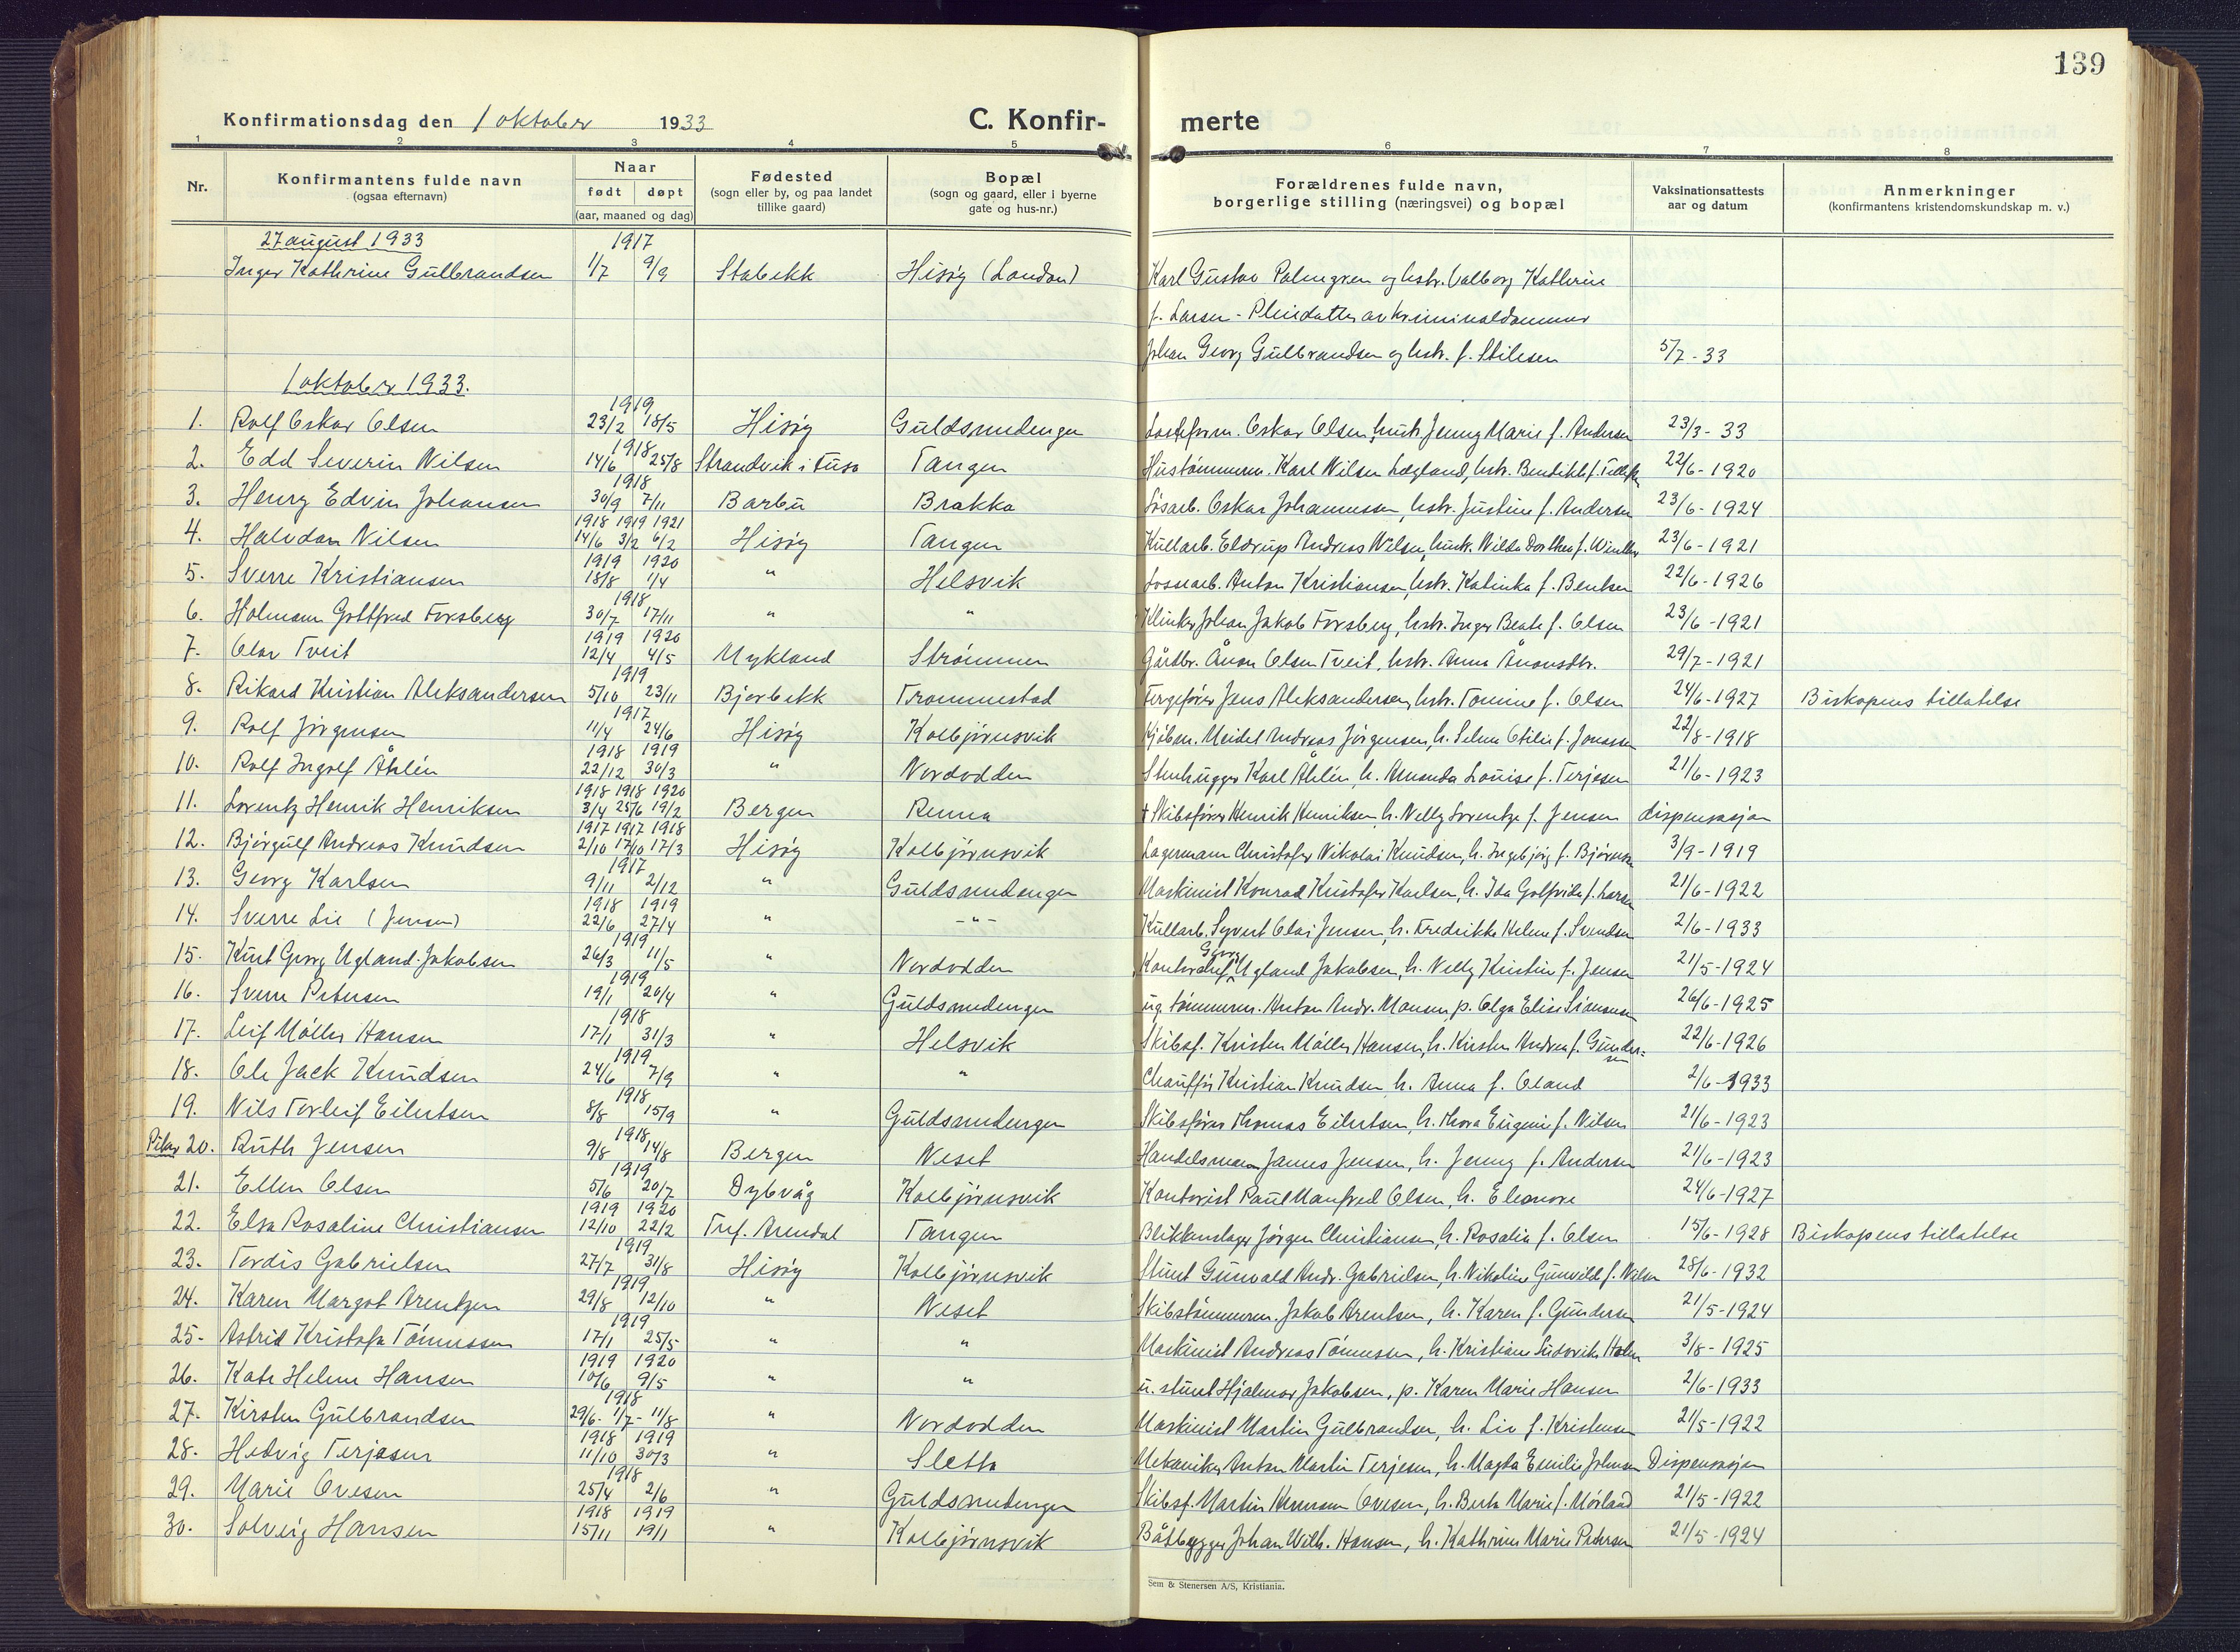 139
Konfirmationsdag den 1 oktober 1933 C. Konfir- merte
1 2 3 4 5 6 7 8
Nr. Konfirmantens fulde navn (ogsaa efternavn) Naar født døpt (aar, maaned og dag) Fødested (sogn eller by, og paa landet tillike gaard) Bopæl (sogn og gaard, eller i byerne gate og hus-nr.) Forældrenes fulde navn, borgerlige stilling (næringsvei) og bopæl Vaksinationsattests aar og datum Anmerkninger (konfirmantens kristendomskundskap m. v.)
27 august 1933 1917
Inger Kathrine Gulbrandsen 1/7 9/9 Stabekk Hisøy (London) Karl Gustav Palmgren og hstr. Valborg Kathrine
f. Larsen - Pleiedatter av kriminaldommer
Johan Georg Gulbrandsen og hstr. f. Stilesen 5/7 - 33
1 oktober 1933.
1919
1. Rolf Oskar Olsen 23/2 18/5 Hisøy Guldsmedengen Oskar Olsen, hustr. Jenny Marie f. Andersen 23/3 - 33
1918
2. Edd Severin Nilsen 14/6 25/8 Strandvik i Fusa Tangen Hustømmerm. Karl Nilsen Lægland, hstr. 22/6 - 1920
1918
3. Henry Edvin Johansen 30/9 7/11 Barbu Brakka Løsarb. Oskar Johannessen, hstr. Justine f. Andersen 23/6 - 1924
1918 1919 1921
4. Halvdan Nilsen 14/6 3/2 6/2 Hisøy Tangen Kullarb. Eldrup Andreas Nilsen, hustr. Hilda Dorthea f. Winther 23/6 - 1921
1919 1920
5. Sverre Kristiansen 18/8 1/4 " Helsvik Lossearb. Anton Kristiansen, hstr. Katinka f. Bentsen 22/6 - 1926
1918
6. Holmann Gottfred Forsberg 30/7 17/11 " " Klinker Johan Jakob Forsberg, hstr. Inger Beate f. Olsen 23/6 - 1921
1919 1920
7. Olav Tveit 12/4 4/5 Mykland Strømmen Gårdbr. Ånon Olsen Tveit, hstr. Anna Ånonsdtr. 29/7 - 1921
1919
8. Rikard Kristian Aleksandersen 5/10 23/11 Bjorbekk Trommestad Fergefører Jens Aleksandersen, hstr. Tomine f. Olsen 24/6 - 1927 Biskopens tillatelse
1917
9. Rolf Jørgensen 11/4 24/6 Hisøy Kolbjørnsvik Kjøbm. Meidel Andreas Jørgensen, h. Selma Otilie f. Jonassen 22/8 - 1918
1918 1919
10. Rolf Ingolf Åhlén 22/12 30/3 " Nordodden Stenhugger Karl Åhlén, h. Amanda Louise f. Terjesen 21/6 - 1923
1918 1918 1920
11. Lorentz Henrik Henriksen 3/4 25/6 19/2 Bergen Renna † Skibsfører Henrik Henriksen, h. Nelly Lorentze f. Jensen dispensasjon
1917 1917 1918
12. Bjørgulf Andreas Knudsen 2/10 17/10 17/3 Hisøy Kolbjørnsvik Lagermann Christofer Nikolai Knudsen, h. Ingebjørg f. Bjørnsen 3/9 - 1919
1917
13. Georg Karlsen 9/11 2/12 " Guldsmedengen Maskinist Konrad Kristofer Karlsen, h. Ida Golfrida f. Larsen 21/6 - 1922
1918 1919
14. Sverre Lie (Jensen) 22/6 27/4 " - " - Kullarb. Syvert Olai Jensen, h. Fredrikke Helene f. Svendsen 2/6 - 1933
1919
15. Knut Georg Ugland-Jakobsen 26/3 11/5 " Nordodden Kontorchef Georg Ugland Jakobsen, h. Nelly Kirstine f. Jensen 21/5 - 1924
1919
16. Sverre Petersen 19/1 20/4 " Guldsmedengen ug. tømmerm. Anton Andr. Monsen p. Olga Elise Simonsen 26/6 - 1925
1918
17. Leif Møller Hansen 17/1 31/3 " Helsvik Skibsf. Kristen Møller Hansen, h. Kirsten Andrea f. Gundersen 22/6 - 1926
1919
18. Ole Jack Knudsen 24/6 7/9 " " Chauffør Kristian Knudsen h. Anna f. Oland 2/6 - 1933
1918
19. Nils Torleif Eilertsen 8/8 15/9 " Guldsmedengen Skibsfører Thomas Eilertsen, h. Thora Eugenie f. Nilsen 21/6 - 1923
1918
Piker 20. Ruth Jensen 9/8 14/8 Bergen Neset Handelsmann James Jensen, h. Jenny f. Andersen 21/6 - 1923
1919
21. Ellen Olsen 5/6 20/7 Dybvåg Kolbjørnsvik Kontorist Paul Manfred Olsen, h. Eleonore 24/6 - 1927
1919 1920
22. Elsa Rosaline Christiansen 12/10 22/2 Tref. Arendal Tangen Blikkenslager Jørgen Christiansen, h. Rosalia f. Olsen 15/6 - 1928 Biskopens tillatelse
1919
23. Tordis Gabrielsen 27/7 31/8 Hisøy Kolbjørnsvik Stuert Gunvald Andr. Gabrielsen, h. Nikoline Gunvilde f. Nilsen 28/6 - 1932
1919
24. Karen Margot Arentzen 29/8 12/10 " Neset Skibstømmerm. Jakob Arentsen, h. Karen f. Gundersen 21/5 - 1924
1919
25. Astrid Kristofa Tønnessen 17/1 25/5 " " Maskinist Andreas Tønnessen, h. Kristiane Ludovika Holm 3/8 - 1925
1919 1920
26. Kate Helene Hansen 10/6 9/5 " " u. stuert Hjalmar Jakobsen, p. Karen Marie Hansen 2/6 - 1933
1918
27. Kirsten Gulbrandsen 29/6 - 1/7 - 11/8 " Nordodden Maskinist Martin Gulbrandsen, h. Liv f. Kristensen 21/5 - 1922
1918 1919
28. Hedvig Terjesen 11/10 30/3 " Sletta Mekaniker Anton Martin Terjesen, h. Magda Emilie Johnsen Dispensasjon
1918
29. Marie Ovesen 25/4 2/6 " Guldsmedengen Skibsf. Martin Herman Ovesen, h. Berta Marie f. Mørland 21/5 - 1922
1918 1919
30. Solveig Hansen 15/11 19/1 " Kolbjørnsvik Båtbygger Johan Wilh. Hansen, h. Kathrine Marie Pedersen 21/5 - 1924
Sem & Stenersen A/S, Kristiania.